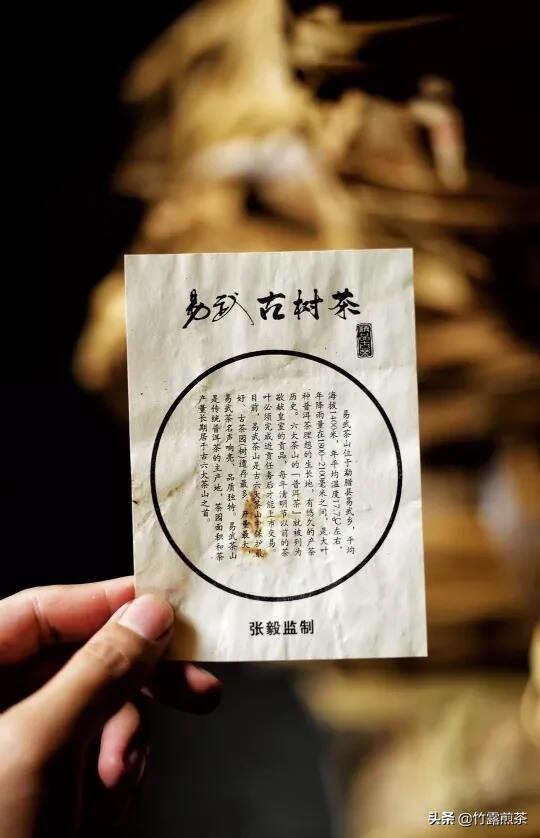 易武古树茶
易武茶山位于勐腊县易武乡，平均
海拔1400米，年平均温度17.7℃左右，
年降雨量在1900-2100毫米之间，是大叶
种普洱茶理想的生长地，有悠久的产茶
历史。六大茶山的「普洱茶」就被列为
敬献皇室的贡品，每年清明节以前的茶
叶必须完成进贡任务后才能上市交易。
目前，易武茶山是古六大茶山中保护最
好、古茶园(树)遗存最多、产量最大、
易武茶名声响亮、品质独特。易武茶山
是传统普洱茶的主产地，茶园面积和茶
产量长期居于古六大茶山之首。
张毅监制
头条 @竹露煎茶